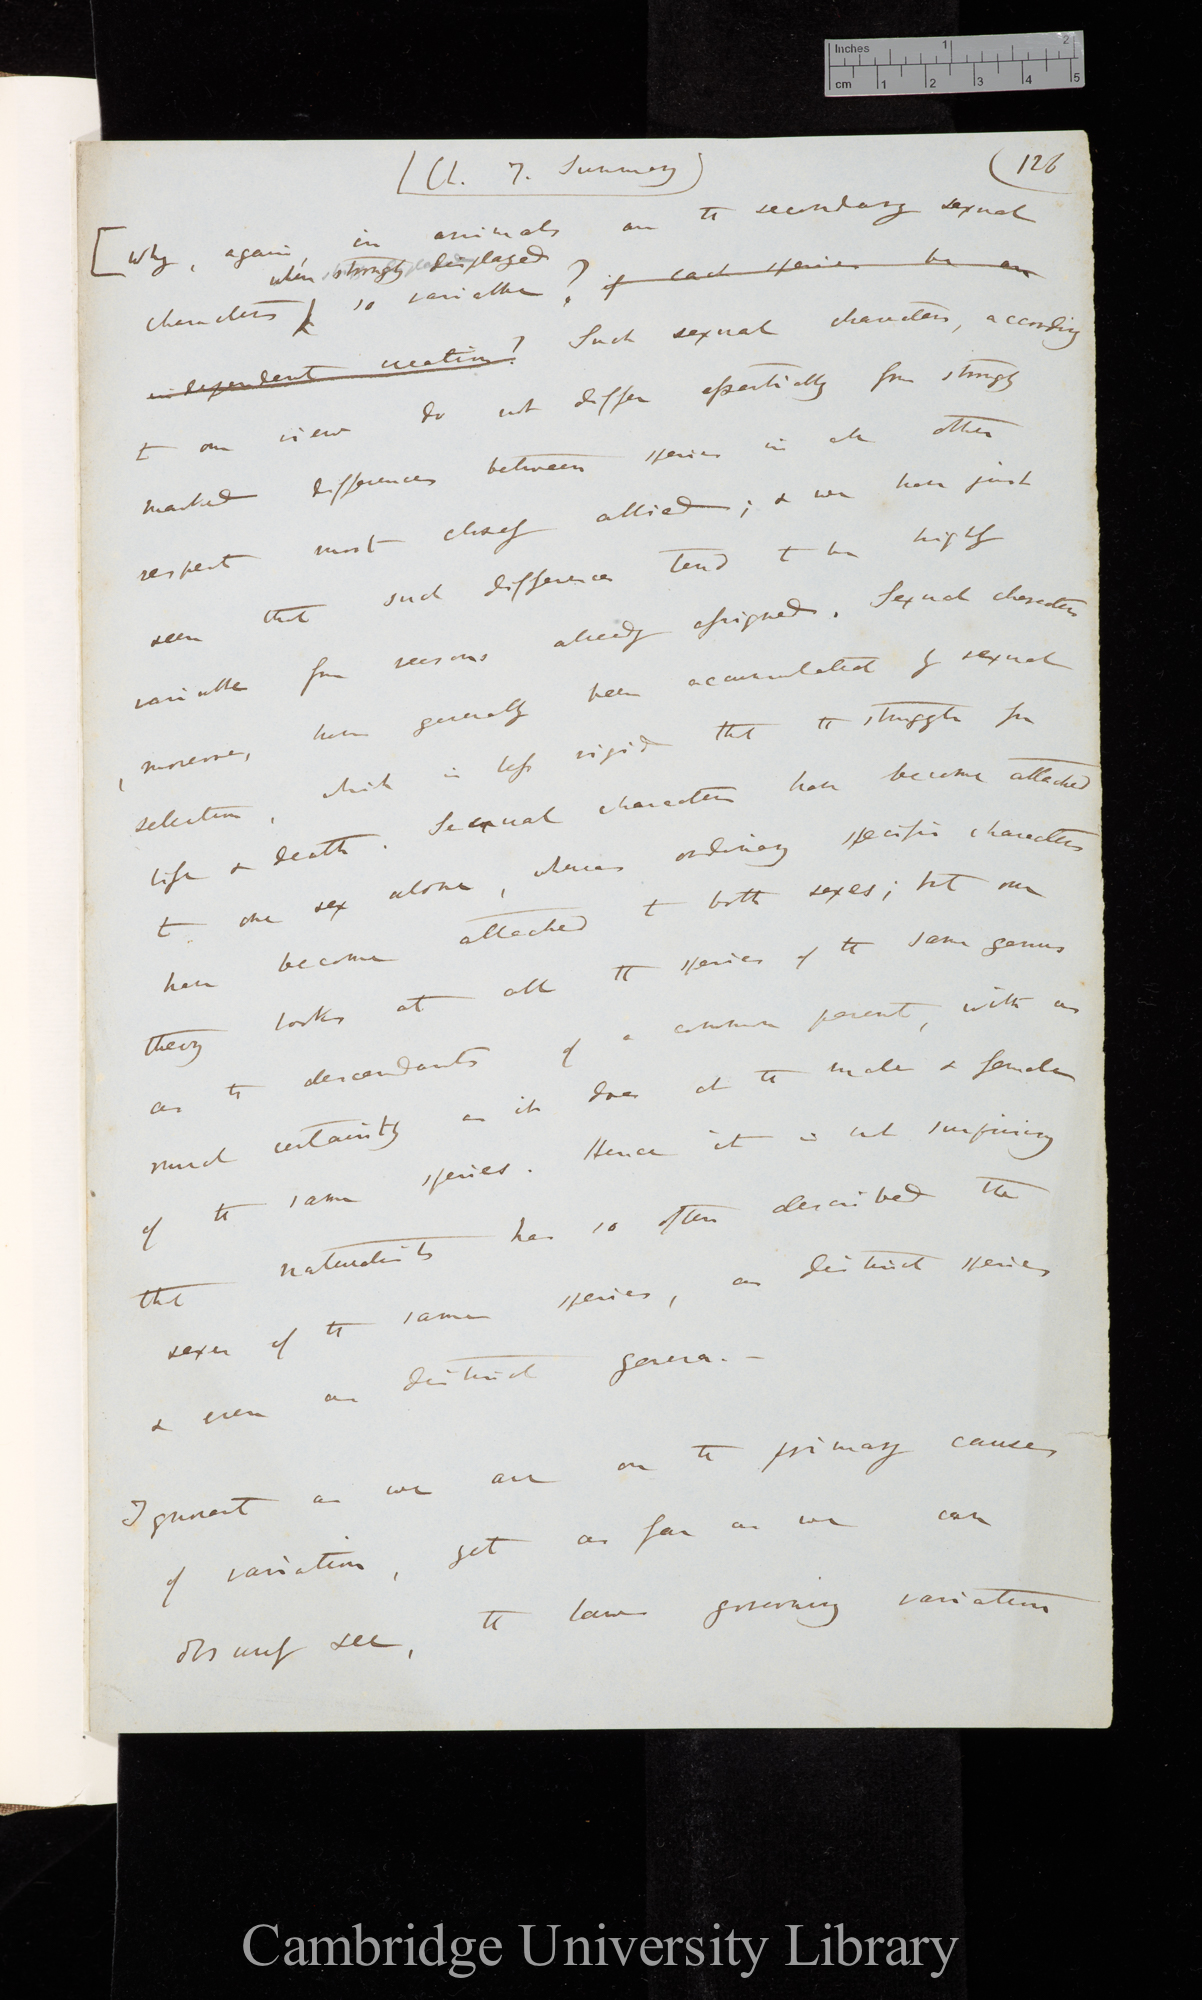 Inches 1 2
cm 1 2 3 4 5
(Ch. 7. Summary) (126
[Why, again, in animals are the secondary sexual
when strongly displayed
characters so variable? if each species be an
independent creation? Such sexual characters, according
to our view do not differ essentially from strongly
marked differences between species in all other
respects most closely allied; & we have just
seen that such differences tend to be highly
variable from reasons already assigned. Sexual characters
, moreover, have generally been accumulated by sexual
selection, which is less rigid that the struggle for
life & death. Sexual characters have become attached
to one sex alone, whereas ordinary specific characters
have become attached to both sexes; but our
theory looks at all the species of the same genus
as the descendants of a common parent, with as
much certainty as it does at the male & female
of the same species. Hence it is not surprising
that naturalists has so often described the
sexes of the same species, as distinct species
& even as distinct genera.—
Ignorant as we are on the primary causes
of variation, yet as far as we can
obscurely see, the laws governing variation
Cambridge University Library